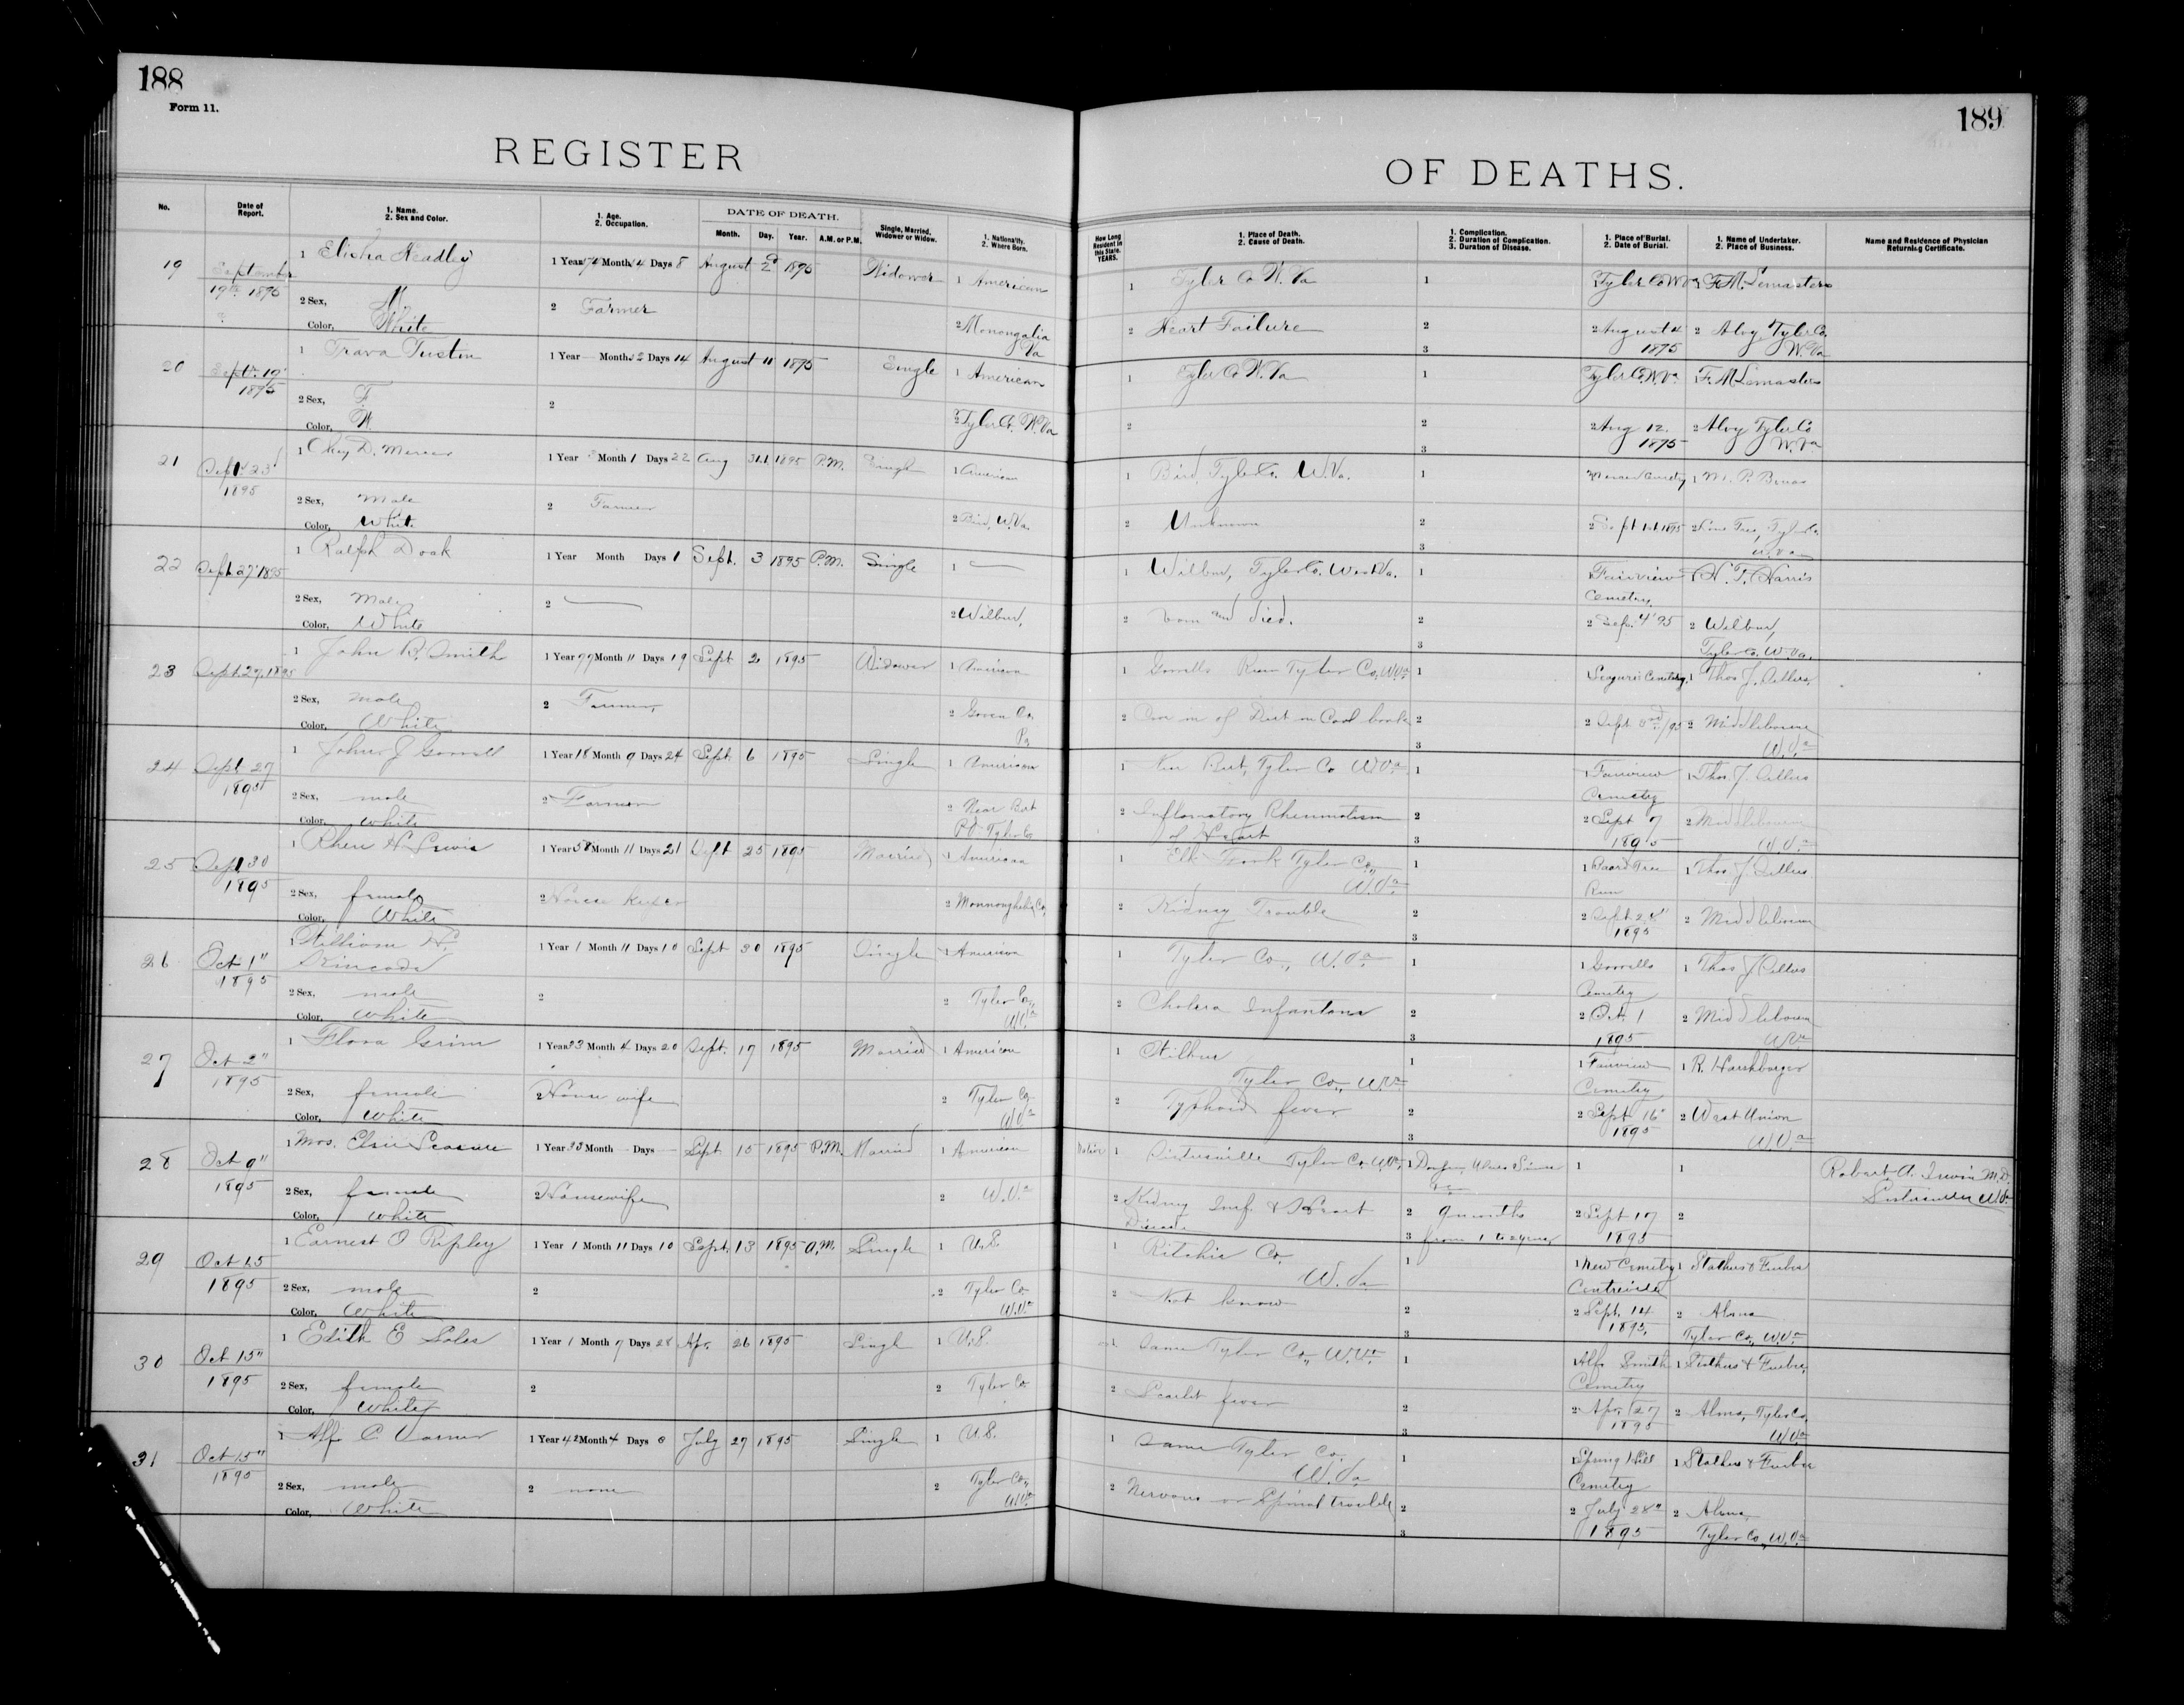 188
Form 11.
REGISTER
No.
Date of Report.
1. Name.
2. Sex and Color.
1. Age.
2. Occupation.
DATE OF DEATH.
Month. Day. Year. A.M. or P.M.
Single, Married, Widower or Widow.
1. Nationality.
2. Where Born.
19 September 19th 1895 1 Elisha Headley 1 Year 74 Month 4 Days 8 August 2d 1895 Widower 1 American
2 Sex, M. 2 Farmer 2 Monongalia Va
Color, White
20 Sept. 19 1895 1 Trava Tustin 1 Year — Months 2 Days 14 August 11 1895 Single 1 American
2 Sex, F. 2 2 Tyler Co. W. Va
Color, W.
21 Sept. 23 1895 1 Okey D. Mercer 1 Year Month 1 Days 22 Aug 31st 1895 P.M. Single 1 American
2 Sex, Male 2 Farmer 2 Bird, W. Va.
Color, White
22 Sept. 27 1895 1 Ralph Doak 1 Year Month Days 1 Sept. 3 1895 P.M. Single 1 —
2 Sex, Male 2 — 2 Wilbur,
Color, White
23 Sept. 27, 1895 1 John R. Smith 1 Year 77 Month 11 Days 19 Sept 2 1895 Widower 1 American
2 Sex, male 2 Farmer, 2 Co, Pa
Color, White
24 Sept 27 1895 1 John J Gorrell 1 Year 18 Month 9 Days 24 Sept. 6 1895 Single 1 American
2 Sex, male 2 Farmer 2 Near Bert P.O. Tyler Co
Color, White
25 Sept 30 1895 1 Lewis 1 Year 58 Month 11 Days 21 Sept 25 1895 Married 1 American
2 Sex, female 2 House keeper 2 Monnonghelia Co,
Color, White
26 Oct 1" 1895 1 William H. Kincade 1 Year 1 Month 11 Days 10 Sept 30 1895 Single 1 American
2 Sex, male 2 2 Tyler Co, W.Va
Color, White
27 Oct 2" 1895 1 Flora Grim 1 Year 23 Month 4 Days 20 Sept. 17 1895 Married 1 American
2 Sex, female 2 House wife 2 Tyler Co W.Va
Color, White
28 Oct 9" 1895 1 Mrs. Elsie 1 Year 33 Month — Days — Sept 15 1895 P.M. Married 1 American
2 Sex, female 2 Housewife 2 W.Va
Color, White
29 Oct 15 1895 1 Earnest O Ripley 1 Year 1 Month 11 Days 10 Sept. 13 1895 A.M. Single 1 U.S.
2 Sex, male 2 2 Tyler Co W.Va
Color, White
30 Oct 15" 1895 1 Edith E Soles 1 Year 1 Month 7 Days 28 Apr. 26 1895 Single 1 U.S.
2 Sex, female 2 2 Tyler Co
Color, White
31 Oct 15" 1895 1 Alf. C Varner 1 Year 42 Month 4 Days 8 July 27 1895 Single 1 U.S.
2 Sex, male 2 none 2 Tyler Co, W.Va
Color, White
189
OF DEATHS.
How Long Resident in this State. YEARS.
1. Place of Death.
2. Cause of Death.
1. Complication.
2. Duration of Complication.
3. Duration of Disease.
1. Place of Burial.
2. Date of Burial.
1. Name of Undertaker.
2. Place of Business.
Name and Residence of Physician Returning Certificate.
1 Tyler Co W. Va 1 1 Tyler Co W Va 1 F. M. Lemasters
2 Heart Failure 2 2 August 4 1895 2 Alvy Tyler Co. W. Va
3
1 Tyler Co W. Va 1 Tyler Co. W. Va 1 F. M Lemasters
2 2 2 Aug 12. 1895 2 Alvy Tyler Co W. Va
3
1 Bird, Tyler Co. W. Va. 1 Mercer Cemetery 1 M. P.
2 Unknown 2 2 Sept 1st 1895 2 Tree, Tyler Co. W. Va
3
1 Wilbur, Tyler Co. West Va. 1 1 Fairview Cemetery, 1 H. T. Harris
2 born and died. 2 2 Sep. 4" 95 2 Wilbur, Tyler Co. W. Va.
3
1 Gorrells Run Tyler Co, W.Va 1 Cemetery, 1 Thos J.
2 of 2 2 Sept. 3rd /95 2 Middlebourne W.Va
3
1 Near Bert, Tyler Co W.Va 1 1 Fairview Cemetery 1 Thos. J.
2 Inflamatory Rheumatism of Heart 2 2 Sept 7 1895 2 Middlebourne W.Va
3
1 Elk Fork Tyler Co, W.Va 1 1 Board Tree Run 1 Thos J
2 Kidney Trouble 2 2 Sept. 1895 2 Middlebourne
3
1 Tyler Co., W.Va 1 1 Gorrells Cemetery 1 Thos J
2 Cholera Infantum 2 2 Oct. 1 1895 2 Middlebourne W.Va
3
1 Wilbur Tyler Co., W.Va 1 1 Fairview Cemetery 1 R. Harshbarger
2 Typhoid fever 2 2 Sept. 16" 1895 2 West Union W.Va
3
Native 1 Sistersville Tyler Co, W.Va 1 1 1 Robert A. Irwin M.D. Sistersville W.Va
2 Kidney Inf. & Heart Disease 2 9 months 2 Sept 17 1895 2
3 from 1 to 2 years
1 Ritchie Co. W. Va 1 1 New Cemetry Centreville 1 Stathers & Furbee
2 Not know 2 2 Sept. 14 1895, 2 Alma Tyler Co, W.Va
3
1 Same Tyler Co, W.Va. 1 1 Alf. Smith Cemetry 1 Stathers & Furbee,
2 Scarlet fever 2 2 Apr. 27 1895 2 Alma, Tyler Co, W.Va
3
1 Same Tyler Co. W. Va 1 1 Spring Hill Cemetry 1 Stathers & Furbee
2 Nervous or Spinal trouble 2 2 July 28" 1895 2 Alma, Tyler Co, W.Va
3